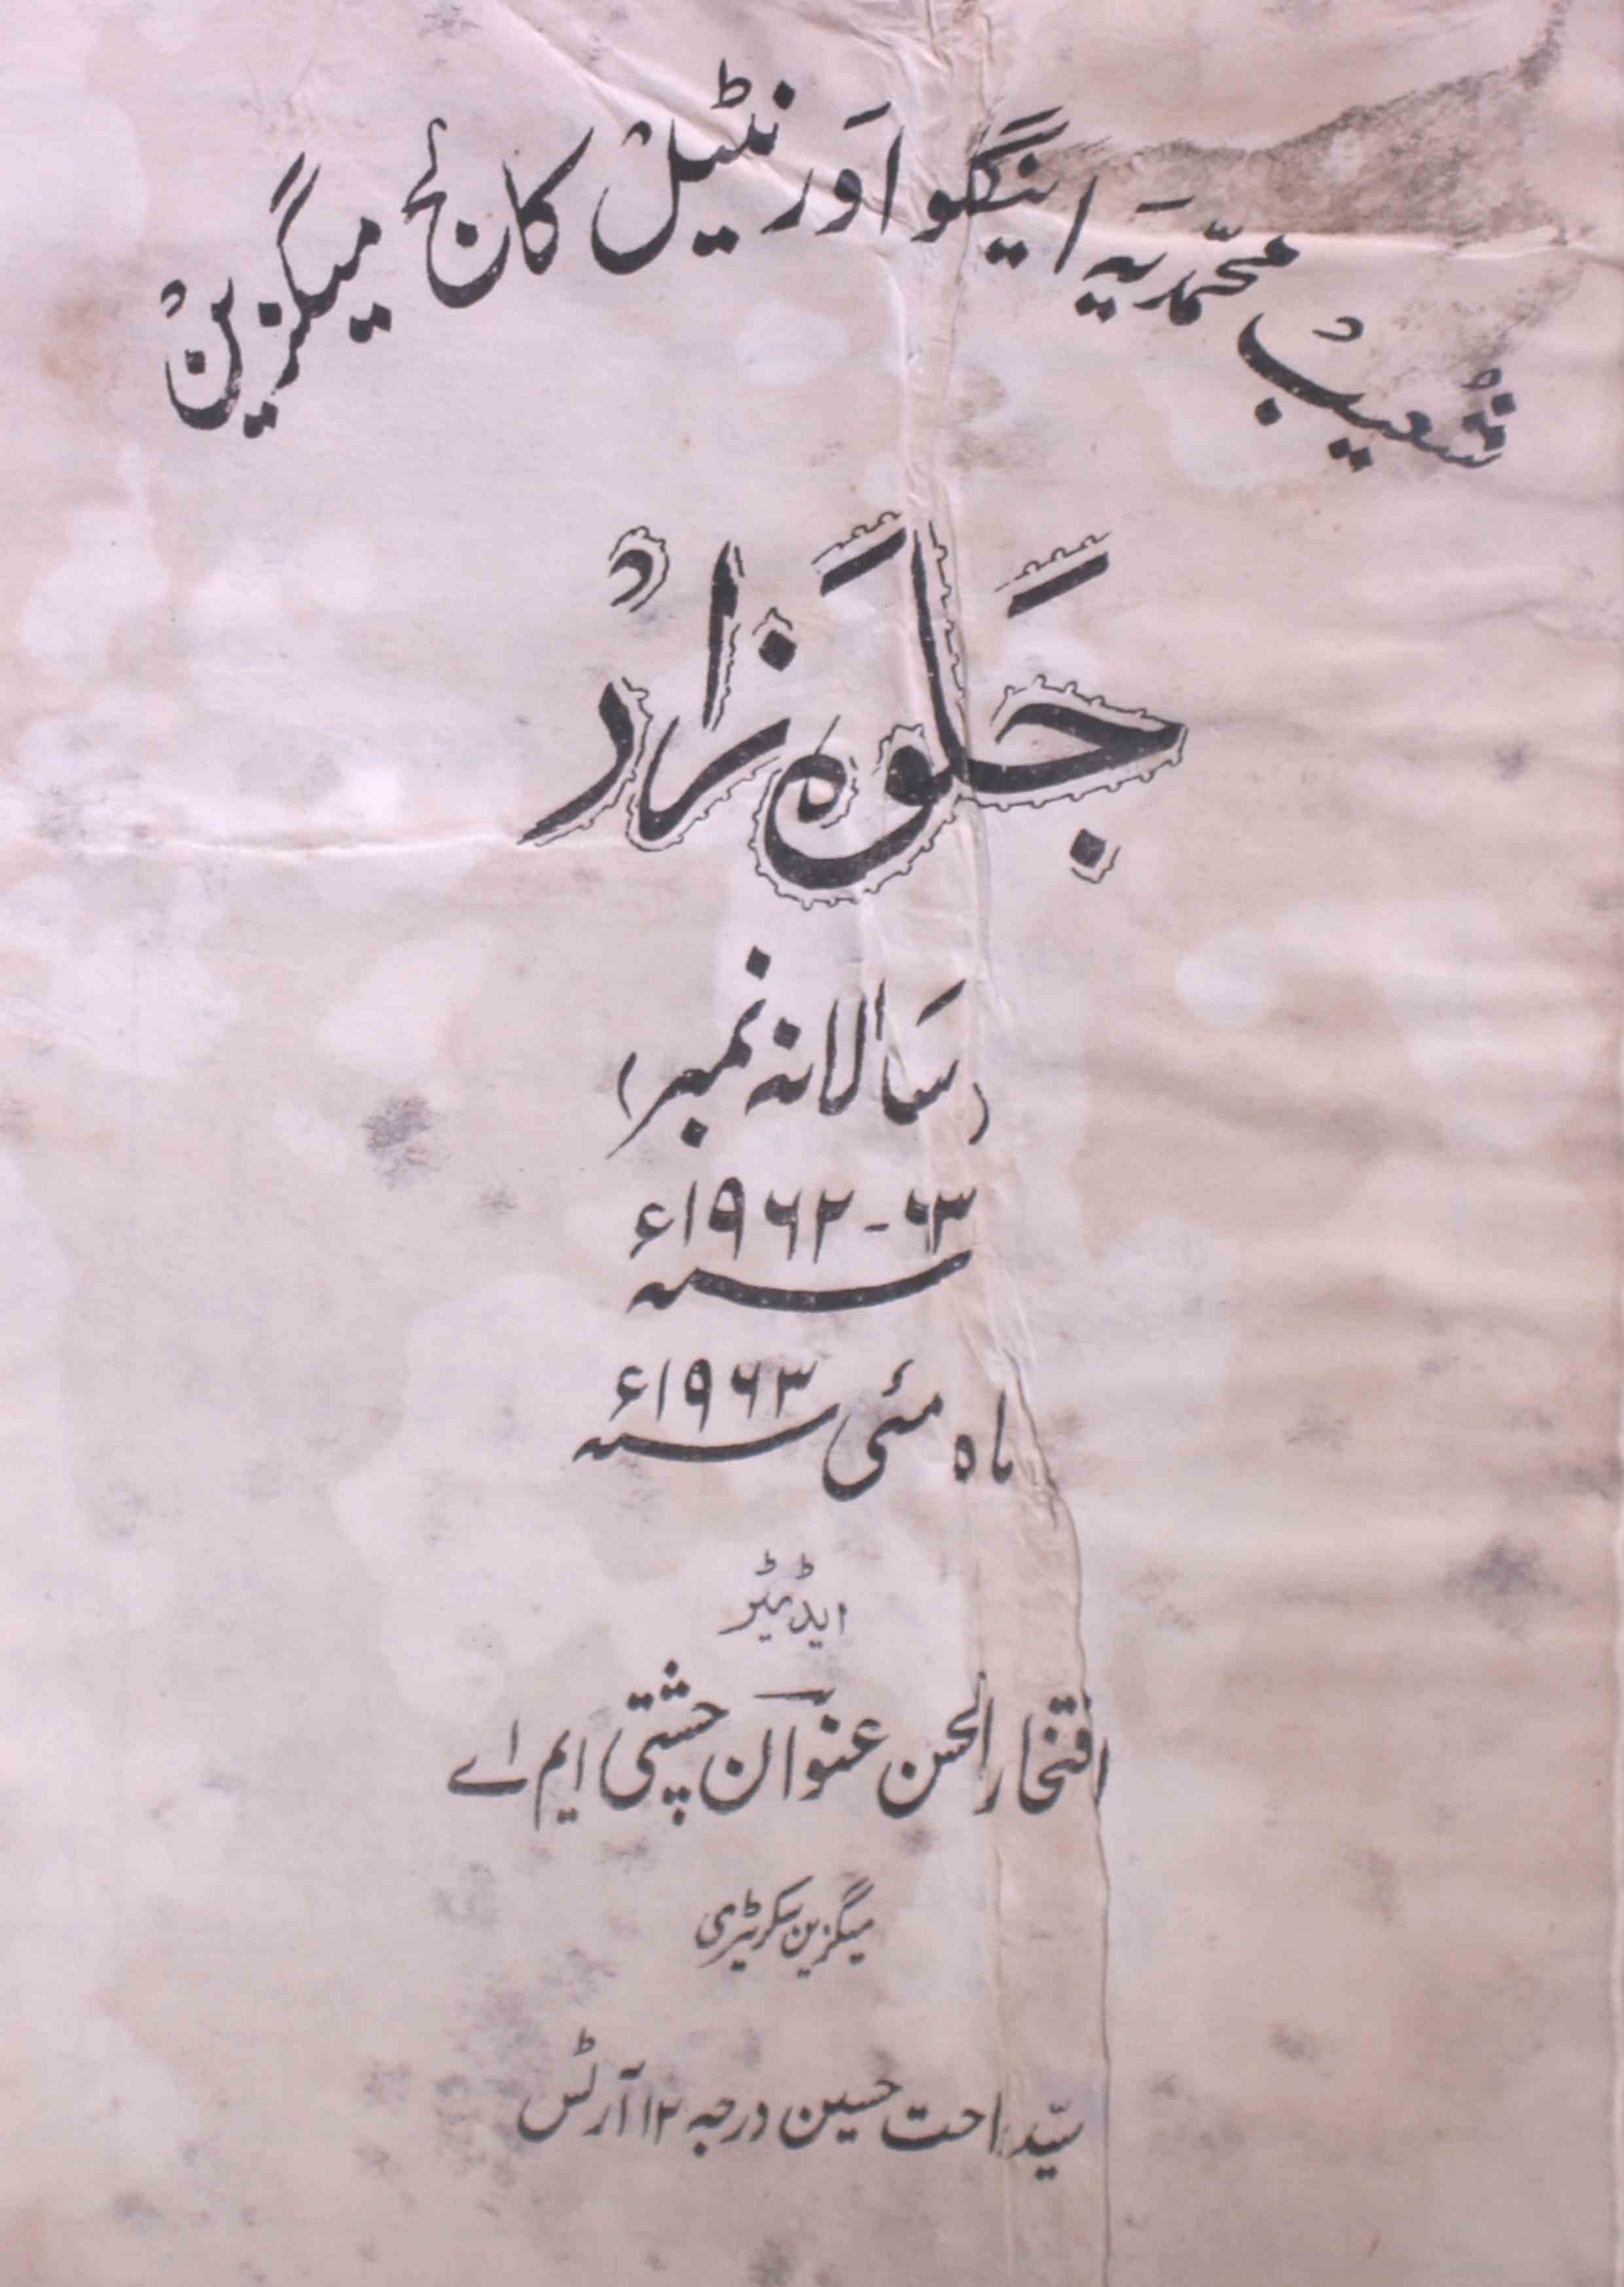 شعیب محمدیہ اینگلو اورنٹیل کالج میگزین
جلوہ زار
(سالانہ نمبر)
سنہ ۱۹۶۲-۶۳ء
ماہ مئی سنہ ۱۹۶۳ء
ایڈیٹر
افتخار الحسن عنوان چشتی ایم اے
میگزین سکریٹری
سید راحت حسین درجہ ۱۲ آرٹس